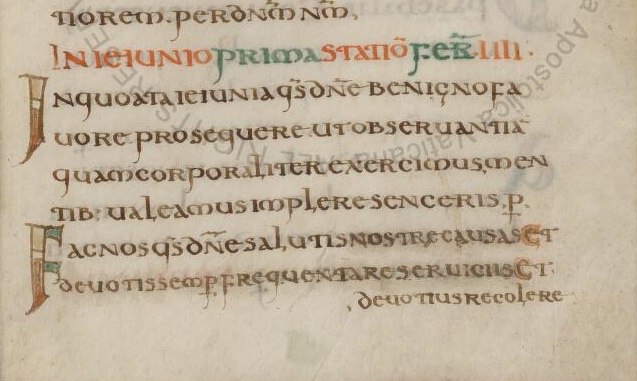 tiorem. per dn̄m nm̄,
IN IEIUNIO PRIMA STATIŌ FER̄ IIII.
Inquoata ieiunia qs̄ dn̄e benigno fa
uore prosequere ut obseruantia
quam corporaliter exercimus, men
tib: ualeamus implere senceris, p̲.
Fac nos qs̄ dn̄e salutis nostre causas et
deuotis semp̲ frequentare seruiciis Et.
, deuotius recolere